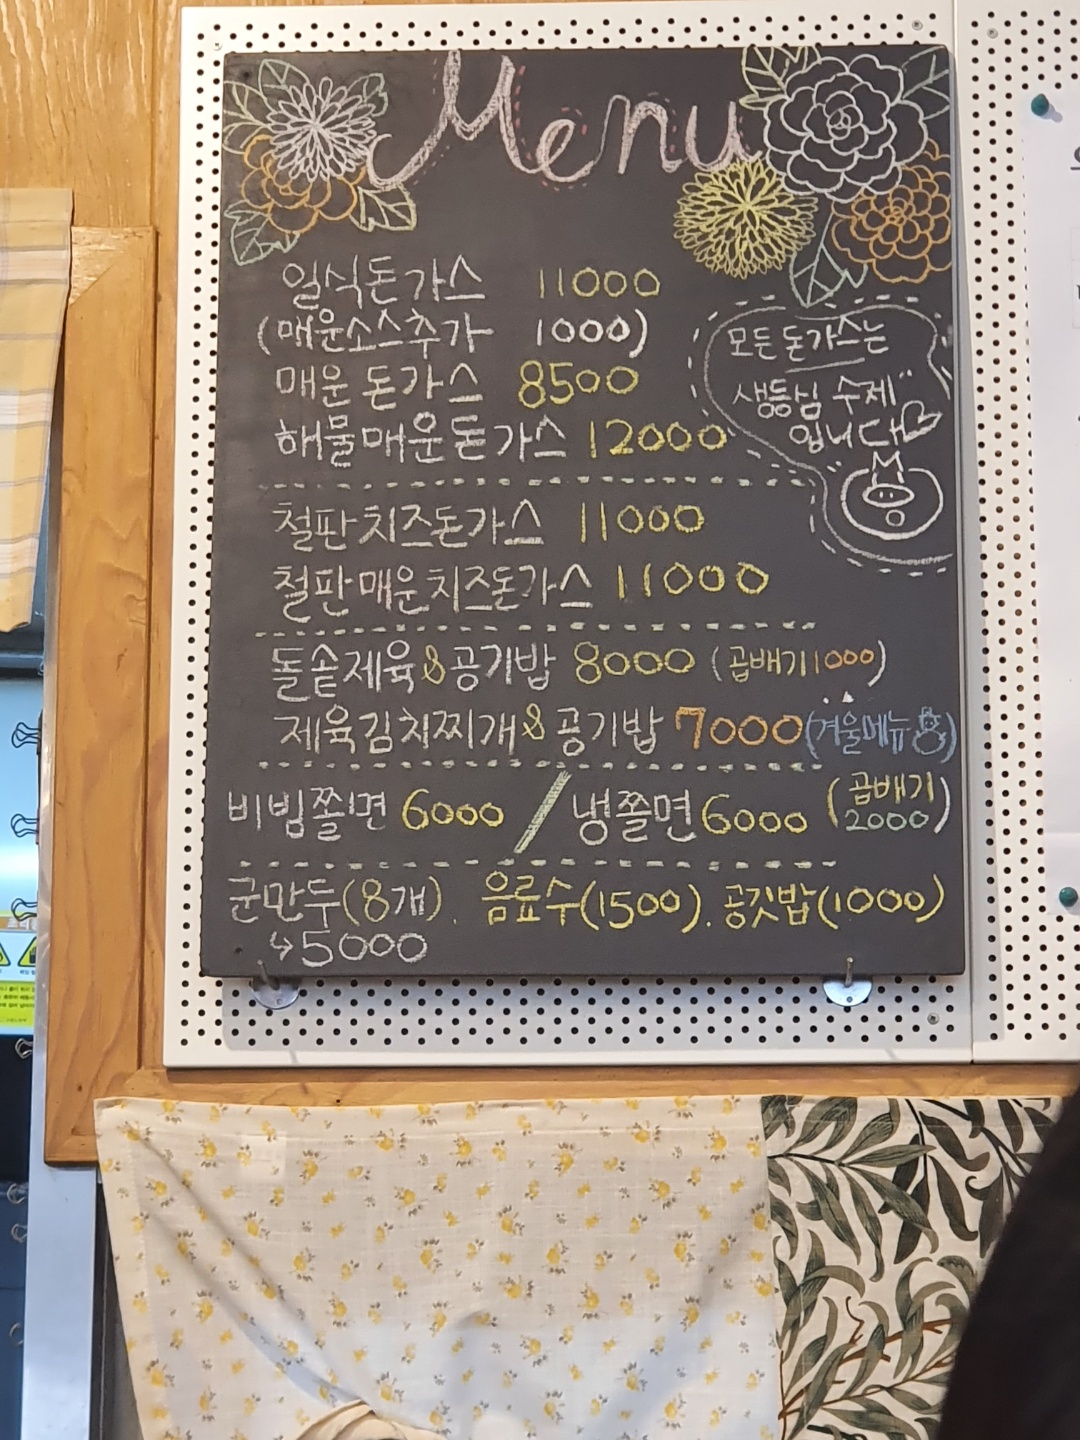 Menu
일식돈가스 11000
(매운소스추가 1000)
매운돈가스 8500
해물매운돈가스 12000
모든돈가스는
생등심 수제"
입니다
철판치즈돈가스 11000
철판매운치즈돈가스 11000
돌솥제육&공기밥 8000 (곱배기1000)
제육김치찌개&공기밥 7000(겨울메뉴)
비빔쫄면 6000 / 냉쫄면 6000 (곱배기
2000)
군만두(8개). 음료수(1500). 공깃밥(1000)
↳5000